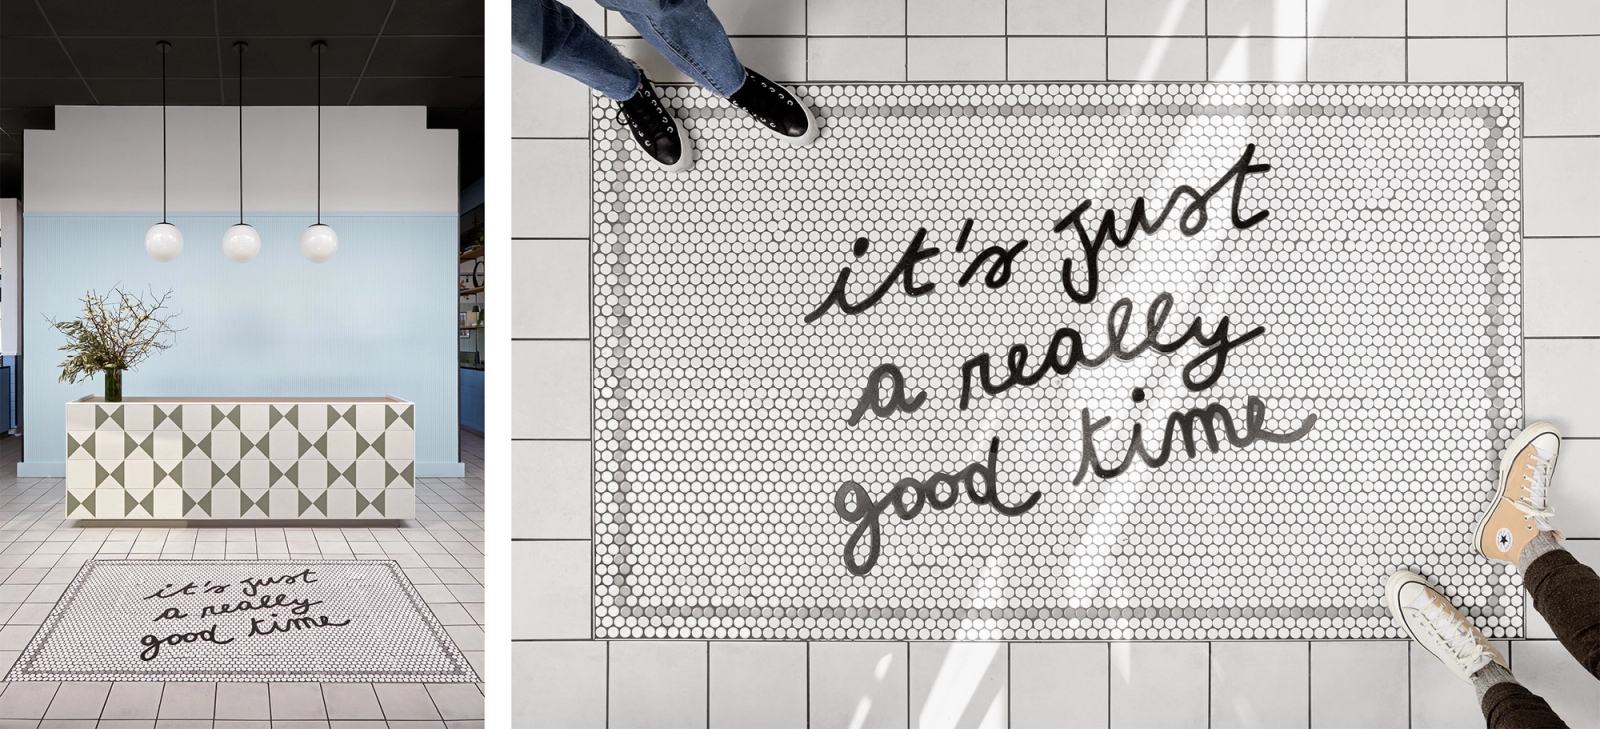 it's just
a really
good time
it's just
a really
good time